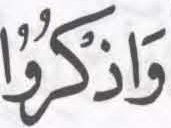 وَاذْكُرُوا